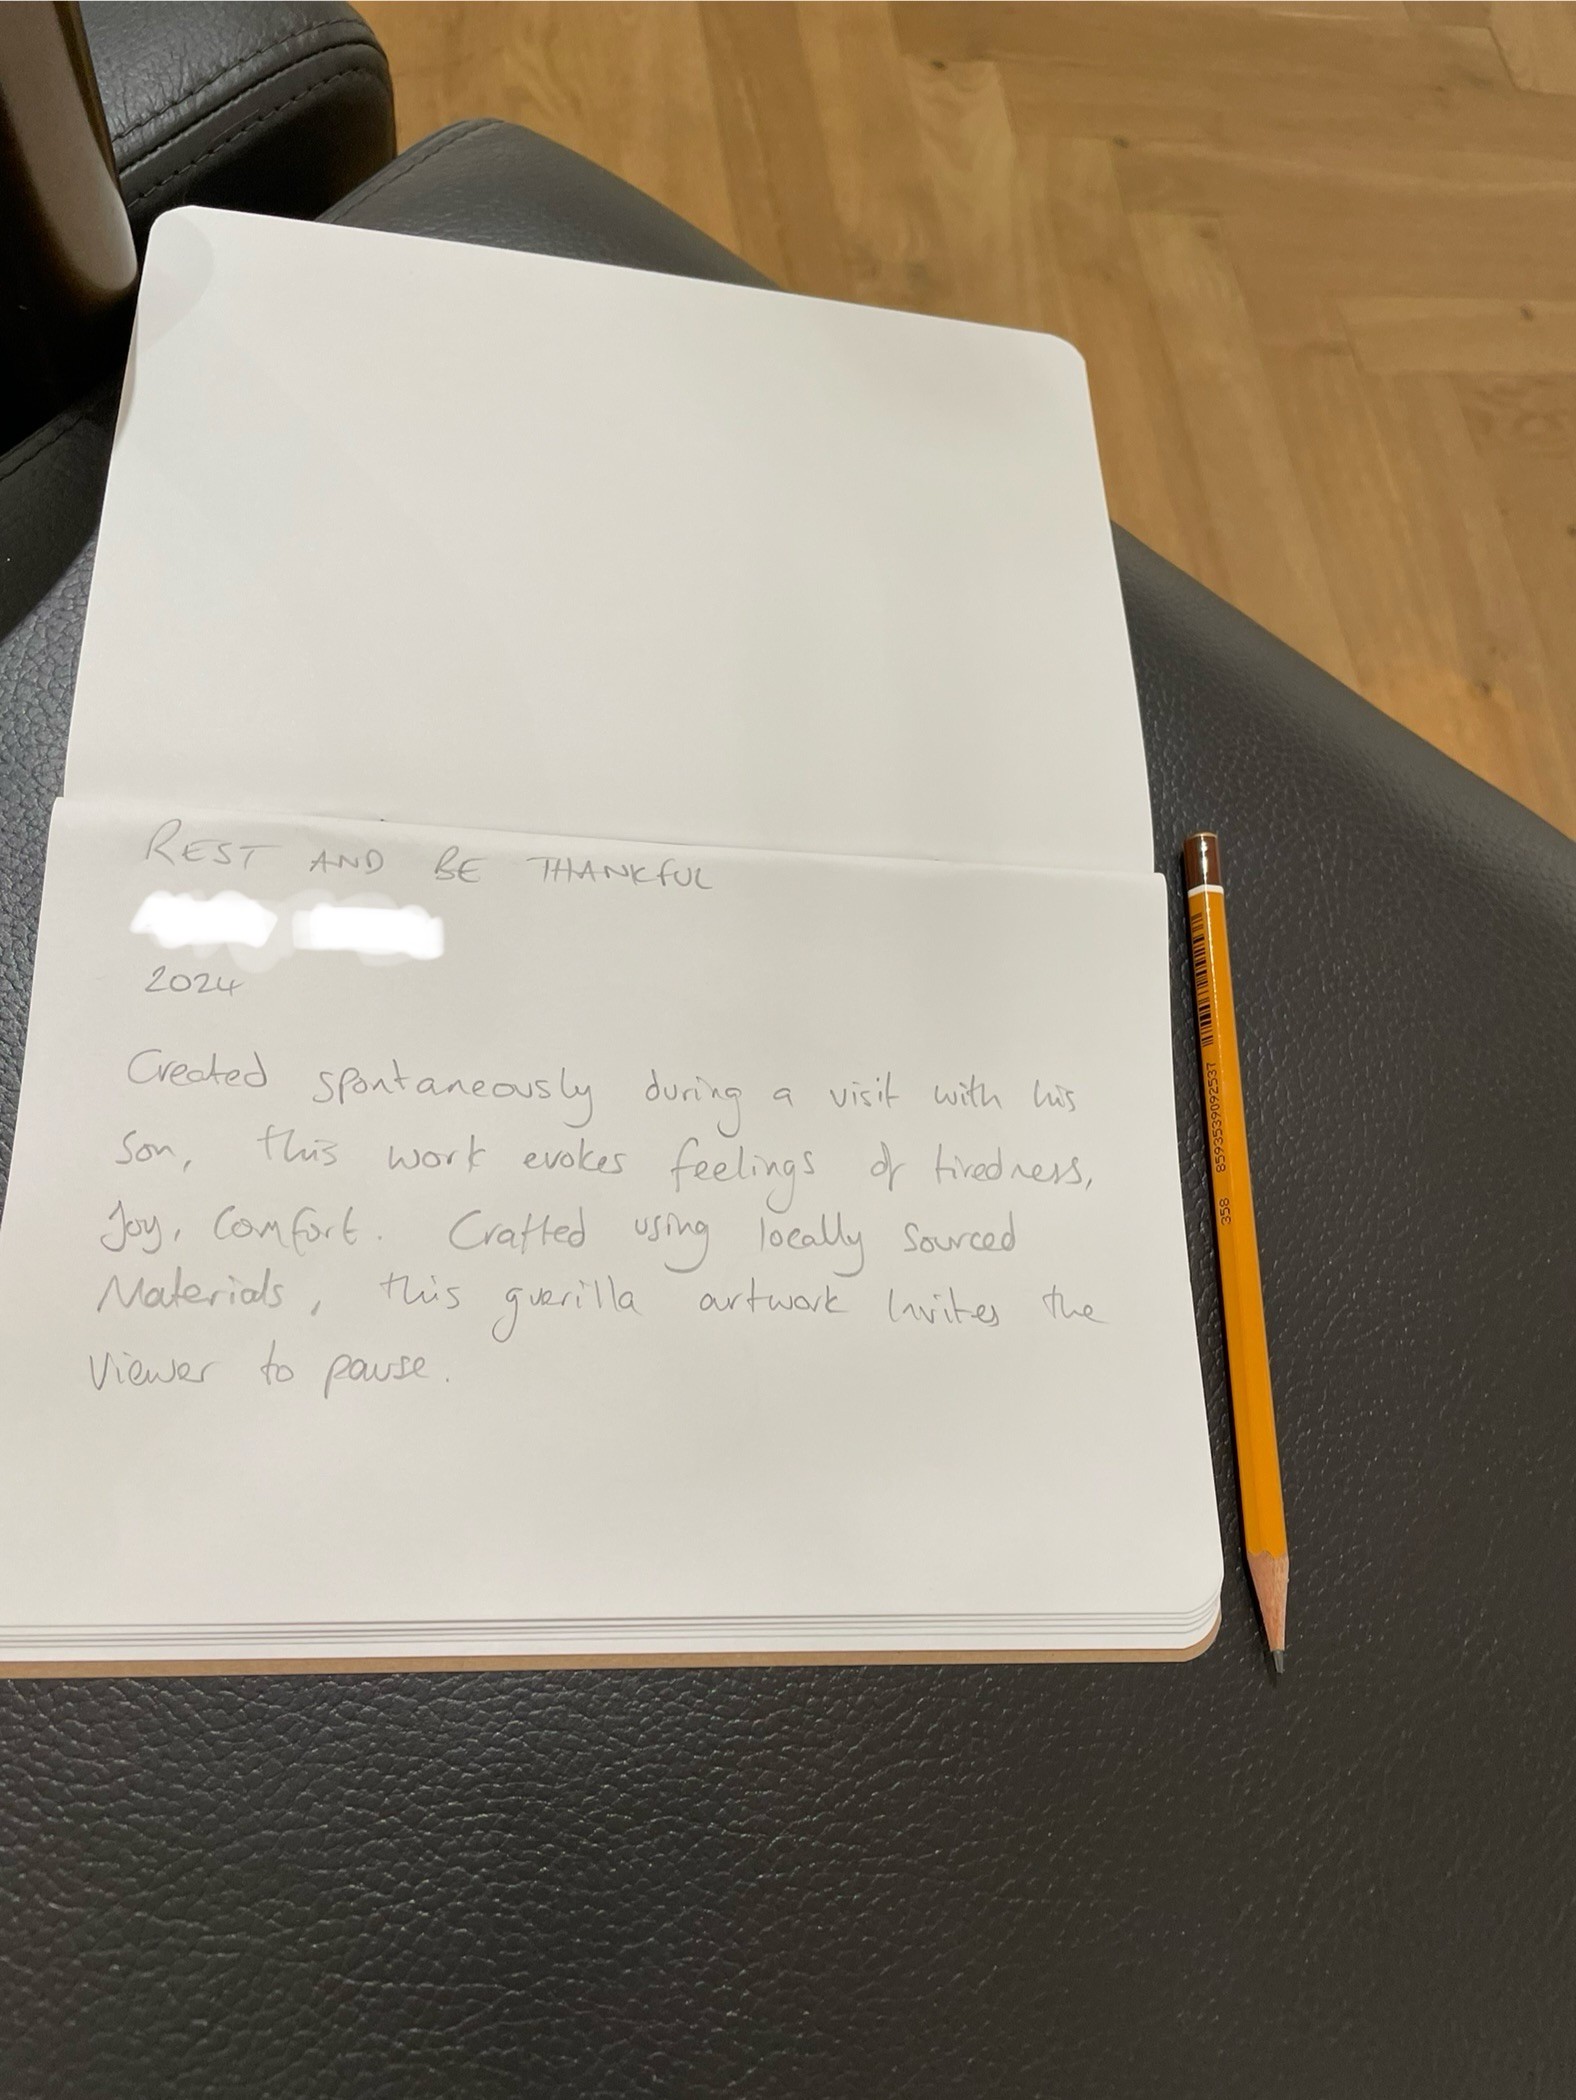 REST AND BE THANKFUL
2024
Created spontaneously during a visit with his
son, this work evokes feelings of tiredness,
Joy, Comfort. Crafted using locally sourced
Materials, this guerilla artwork Invites the
Viewer to pause.
358 8593539092537